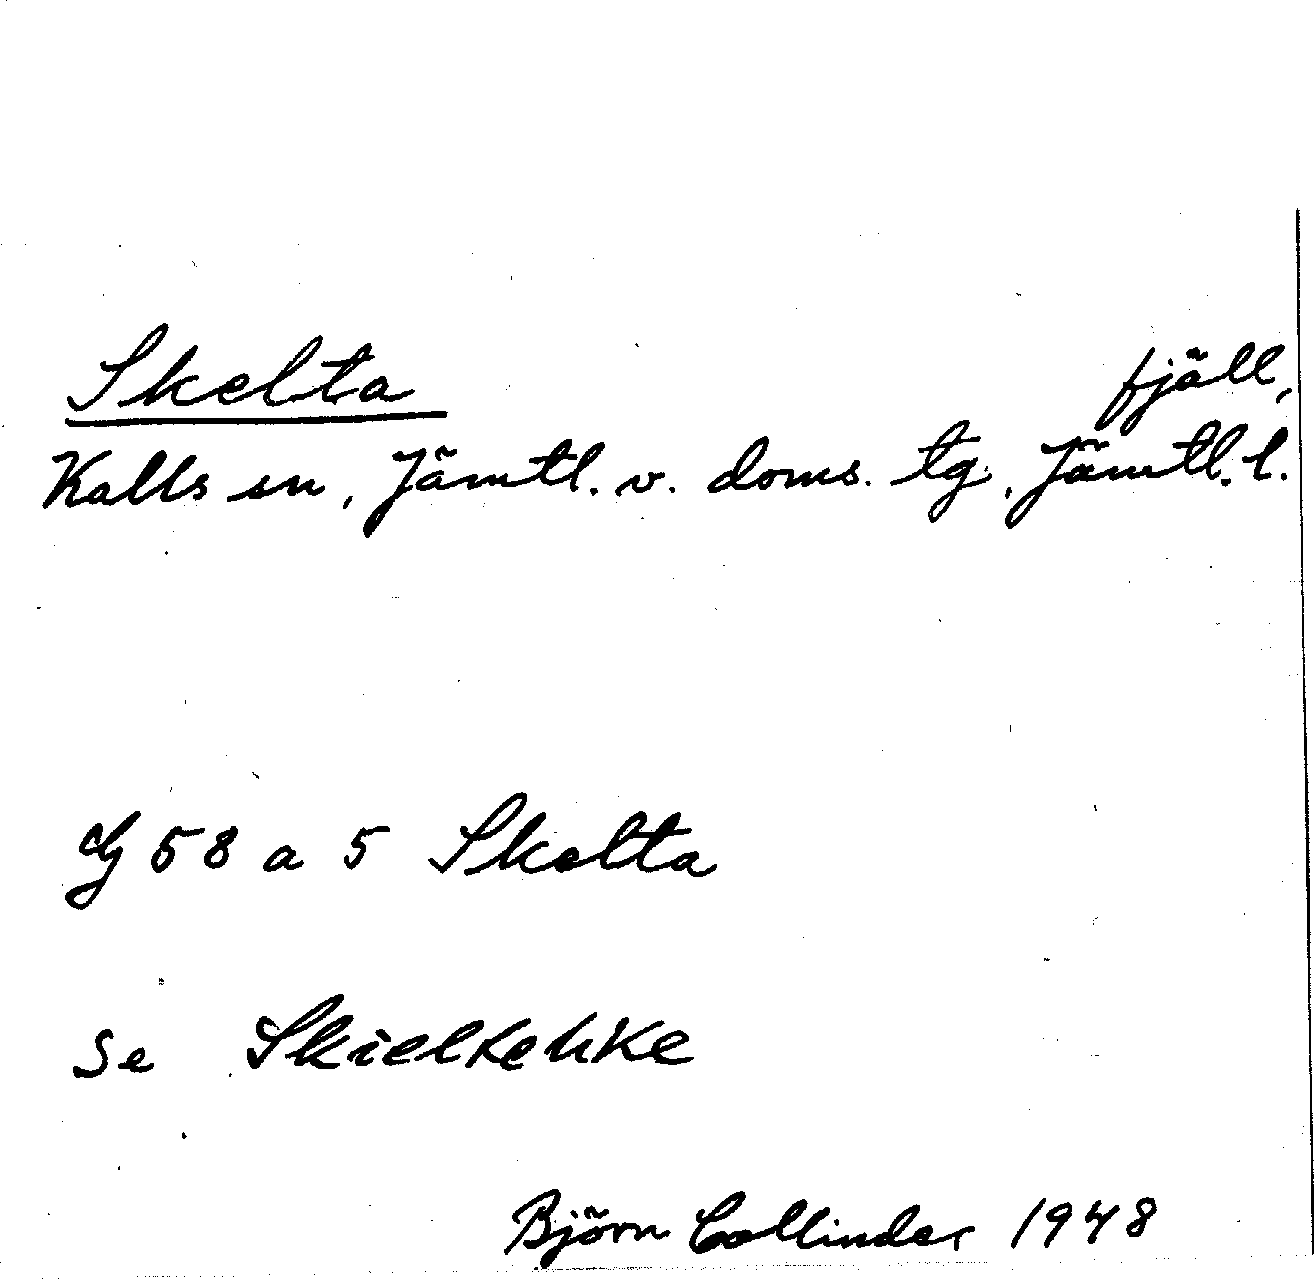 Skelta fjäll,
Kalls sn, Jämtl. v. doms. tg, Jämtl. l.
G 58 a 5 Skelta
Se Skielkehke
Björn Collinder 1948